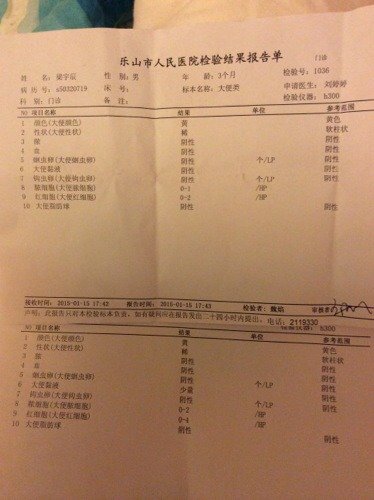 乐山市人民医院检验结果报告单 门诊
姓 名: 梁宇辰 性 别: 男 年 龄: 3个月 检验号: 1036
病历号: s50320719 床 号: 标本名称: 大便类 申请医生: 刘婷婷
科 别: 门诊 备 注: 检验仪器: h300
NO 项目名称 结果 单位 参考范围
1 颜色(大便颜色) 黄 黄色
2 性状(大便性状) 稀 软柱状
3 脓 阴性 阴性
4 血 阴性 阴性
5 蛔虫卵(大便蛔虫卵) 阴性 个/LP 阴性
6 大便黏液 阴性 阴性
7 钩虫卵(大便钩虫卵) 阴性 个/LP 阴性
8 脓细胞(大便脓细胞) 0-1 /HP 阴性
9 红细胞(大便红细胞) 0-2 /HP 阴性
10 大便脂肪球 阴性 阴性
接收时间: 2015-01-15 17:42 报告时间: 2015-01-15 17:43 检验者: 魏焰 审核者:
声明: 此报告只对本检验标本负责, 如有疑问应在报告发出二十四小时内提出。 电话: 2119330
检验仪器: h300
NO 项目名称 结果 单位 参考范围
1 颜色(大便颜色) 黄 黄色
2 性状(大便性状) 稀 软柱状
3 脓 阴性 阴性
4 血 阴性 阴性
5 蛔虫卵(大便蛔虫卵) 阴性 个/LP 阴性
6 大便黏液 少量 阴性
7 钩虫卵(大便钩虫卵) 阴性 个/LP 阴性
8 脓细胞(大便脓细胞) 0-2 /HP 阴性
9 红细胞(大便红细胞) 0-4 /HP 阴性
10 大便脂肪球 阴性 阴性